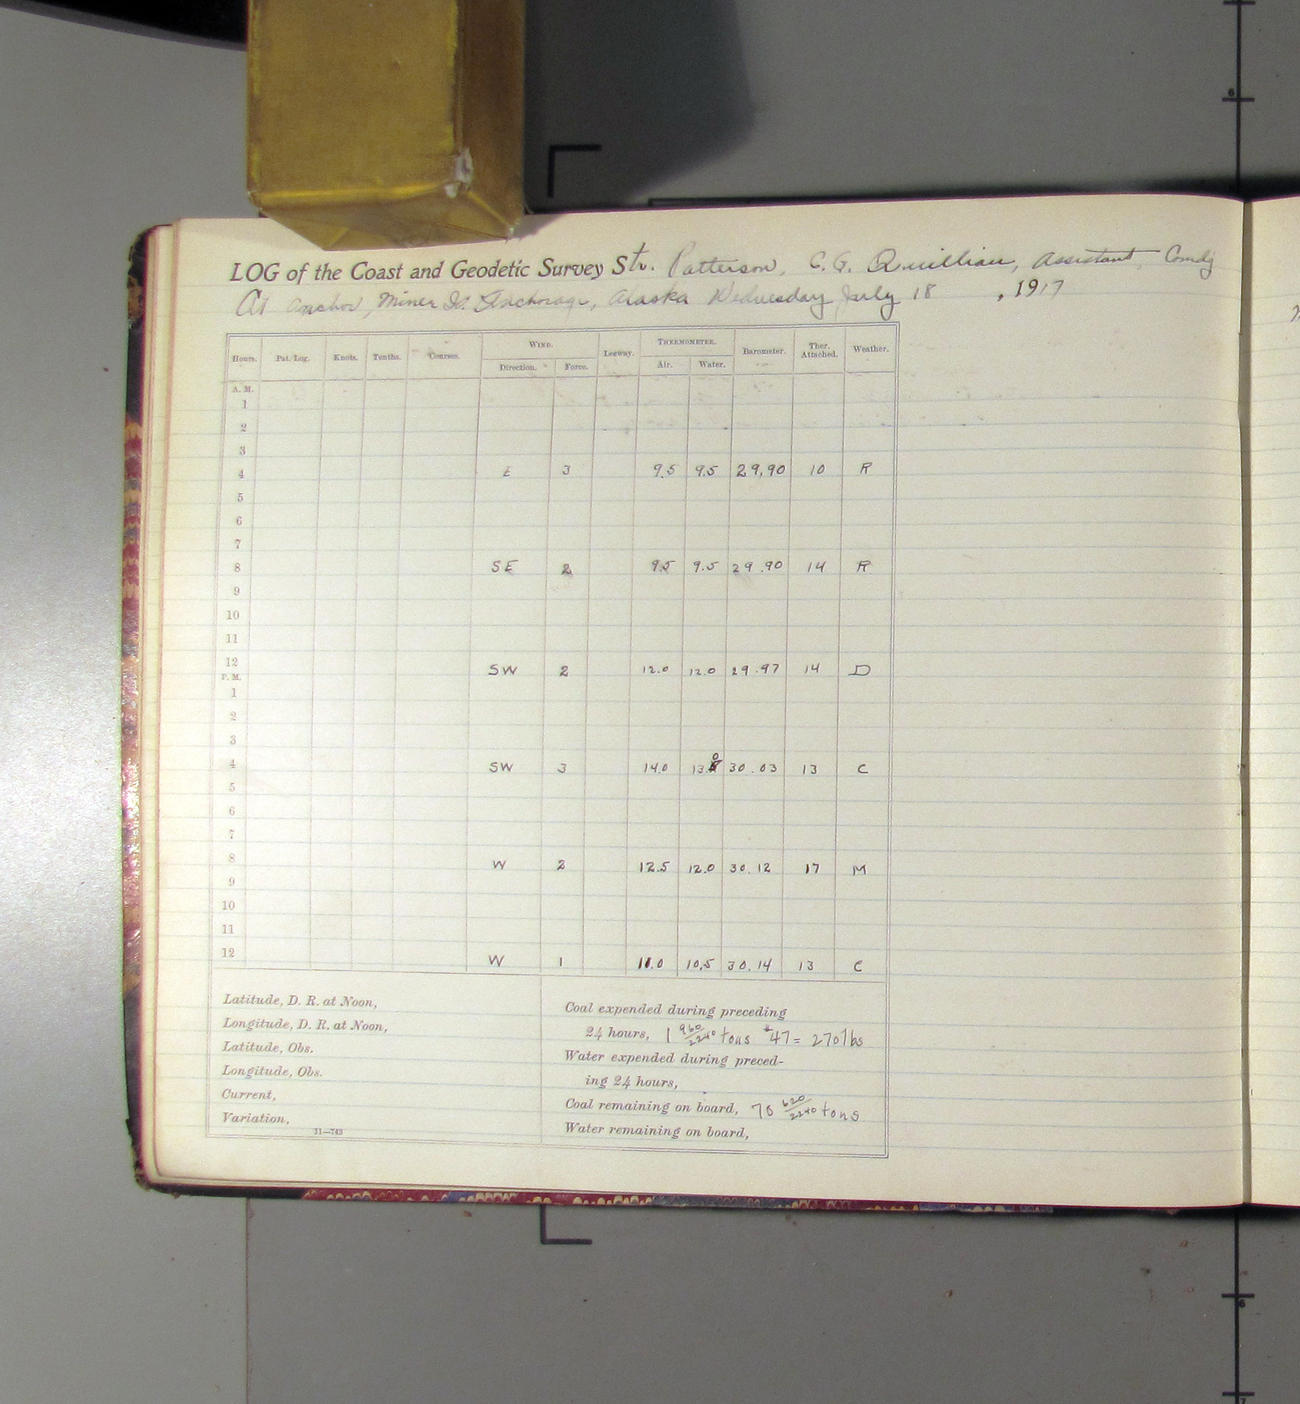 LOG of the Coast and Geodetic Survey Str. Patterson, C. G. Quillian, Assistant, Comdg
At anchor, Miner Is. Anchorage, Alaska Wednesday July 18, 1917
Hours. Pat. Log. Knots. Tenths. Courses. WIND. Leeway. THERMOMETER. Barometer. Ther. Attached. Weather.
Direction. Force. Air. Water.
A. M.
1
2
3
4 E 3 9.5 9.5 29.90 10 R
5
6
7
8 SE 2 9.5 9.5 29.90 14 R
9
10
11
12 SW 2 12.0 12.0 29.97 14 D
P. M.
1
2
3
4 SW 3 14.0 13.0 30.03 13 C
5
6
7
8 W 2 12.5 12.0 30.12 17 M
9
10
11
12 W 1 11.0 10.5 30.14 13 C
Latitude, D. R. at Noon,
Longitude, D. R. at Noon,
Latitude, Obs.
Longitude, Obs.
Current,
Variation,
11—743
Coal expended during preceding
24 hours, 1 960/2240 tons #47 = 270 lbs
Water expended during preced-
ing 24 hours,
Coal remaining on board, 78 620/2240 tons
Water remaining on board,
6
6
7